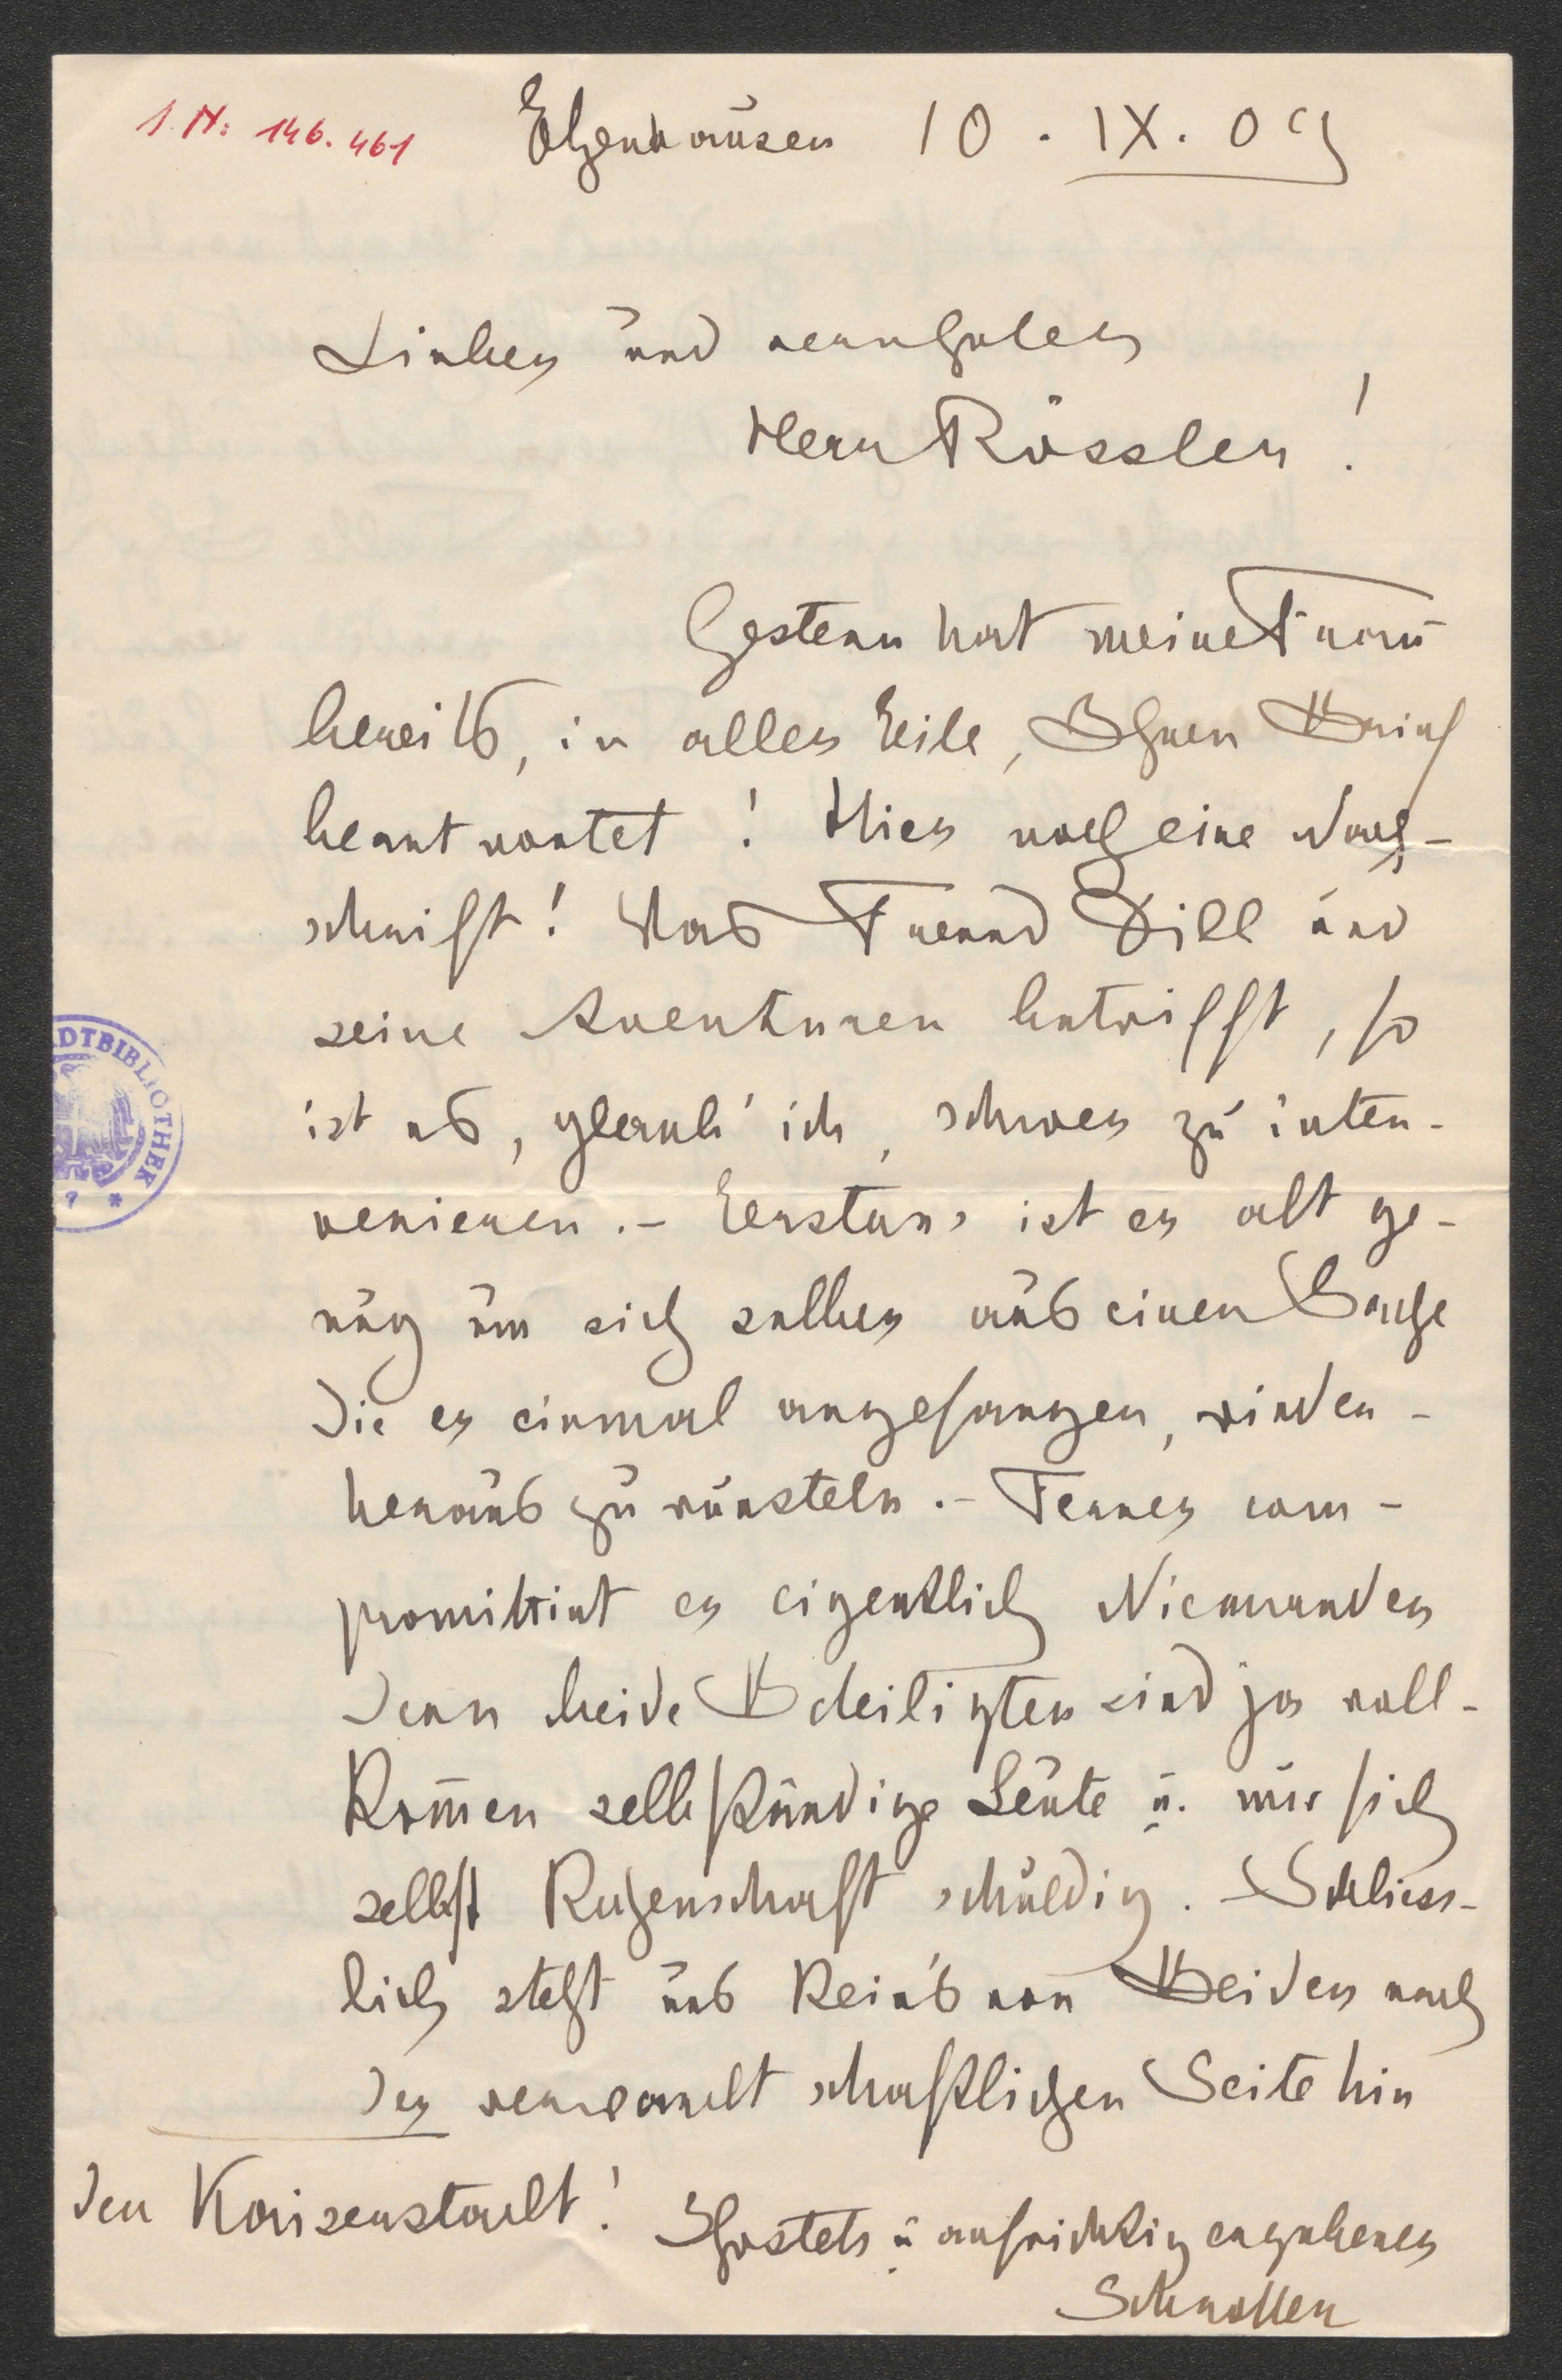 I. N: 146.461
Etzenhausen 10. IX. 09
Lieber und verehrter
Herr Rössler!
Gestern hat meine Frau
bereits, in aller Eile, Ihren Brief
beantwortet! Hier noch eine Nach-
schrift! Was Freund Dill und
seine Aventuren betrifft, so
ist es, glaub' ich, schwer zu inter-
venieren. – Erstens ist er alt ge-
nug um sich selber aus einer Sache
die er einmal angefangen, wieder
herauszuwursteln. – Ferner com-
promittiert er eigentlich Niemanden
denn beide Beteiligten sind ja voll-
kom̅en selbständige Leute u. nur sich
selbst Rechenschaft schuldig. Schliess-
lich steht uns Kein's von Beiden nach
der verwandtschaftlichen Seite hin
der Kaiserstadt!
Ihr stets u. aufrichtig ergebener
ADTBIBLIOTHEK